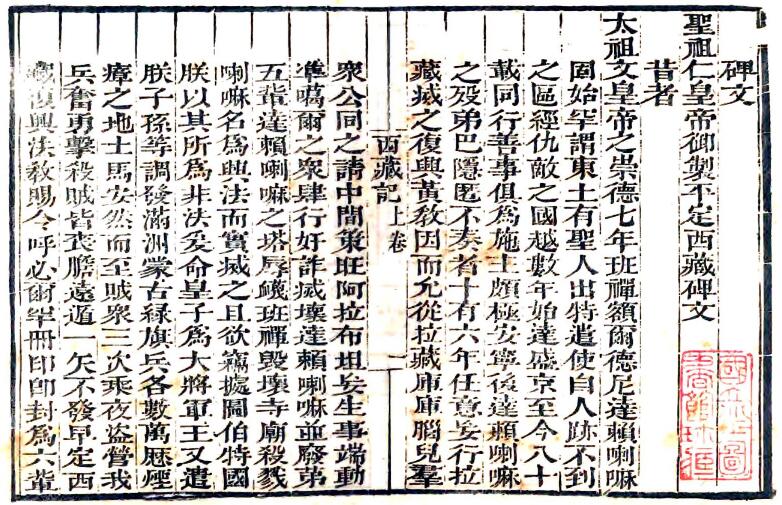 碑文
聖祖仁皇帝御製平定西藏碑文
昔者
太祖文皇帝之崇德七年班禪額爾德尼達賴喇嘛
固始罕謂東土有聖人出特遣使自人跡不到
之區經仇敵之國越數年始達盛京至今八十
載同行善事俱為施主頗極安寧後達賴喇嘛
之歿弟巴隱匿不奏者十有六年任意妄行拉
藏滅之復興黃教因而允從拉藏庫庫腦兒羣
西藏記上卷
衆公同之請中間策旺阿拉布坦妄生事端動
準噶爾之衆肆行奸詐滅壞達賴喇嘛並廢第
五輩達賴喇嘛之塔辱衊班禪毀壞寺廟殺戮
喇嘛名為興法而實滅之且欲竊據圖伯特國
朕以其所為非法爰命皇子為大將軍王又遣
朕子孫等調發滿洲蒙古緑旗兵各數萬歷煙
瘴之地士馬安然而至賊衆三次乘夜盜營我
兵奮勇擊殺賊皆喪膽遠遁一矢不發平定西
藏復興法教賜今呼必爾罕冊印封為六輩